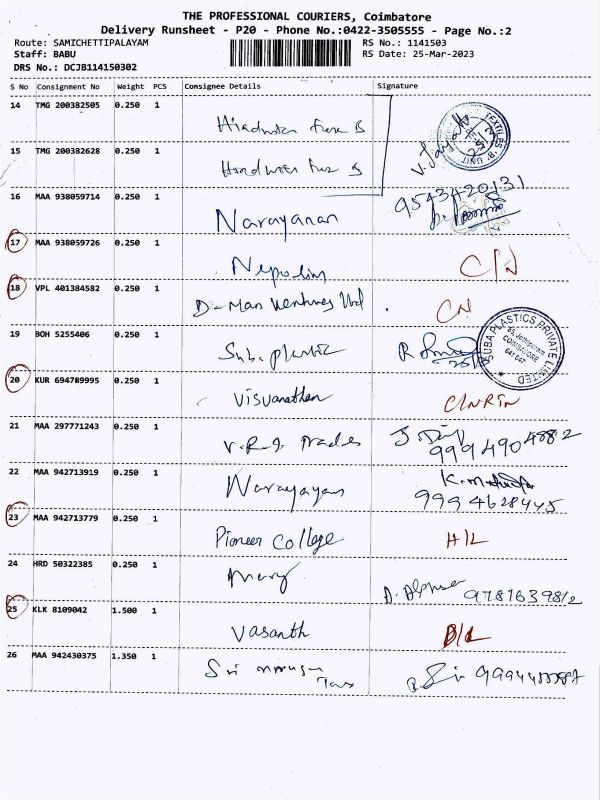 THE PROFESSIONAL COURIERS, Coimbatore
Delivery Runsheet - P20 - Phone No.:0422-3505555 - Page No.:2
Route: SAMICHETTIPALAYAM RS No.: 1141503
Staff: BABU RS Date: 25-Mar-2023
DRS No.: DCJB114150302
S No Consignment No Weight PCS Consignee Details Signature
14 TMG 200382505 0.250 1
15 TMG 200382628 0.250 1
TEXTILES B. UNIT
16 MAA 938059714 0.250 1 Narayanan 9543420131
17 MAA 938059726 0.250 1 C/N
18 VPL 401384582 0.250 1 D-Man Ventures CN
19 BOH 5255406 0.250 1 Suba plastic
SUBA PLASTICS PRIVATE LIMITED
COIMBATORE
641 047
20 KUR 694789995 0.250 1 Visvanathan
21 MAA 297771243 0.250 1 Trades
22 MAA 942713919 0.250 1 Narayayan 9994628445
23 MAA 942713779 0.250 1 Pioneer College H/L
24 HRD 50322385 0.250 1 Mary
25 KLK 8109042 1.500 1 Vasanth D/L
26 MAA 942430375 1.350 1 Sri